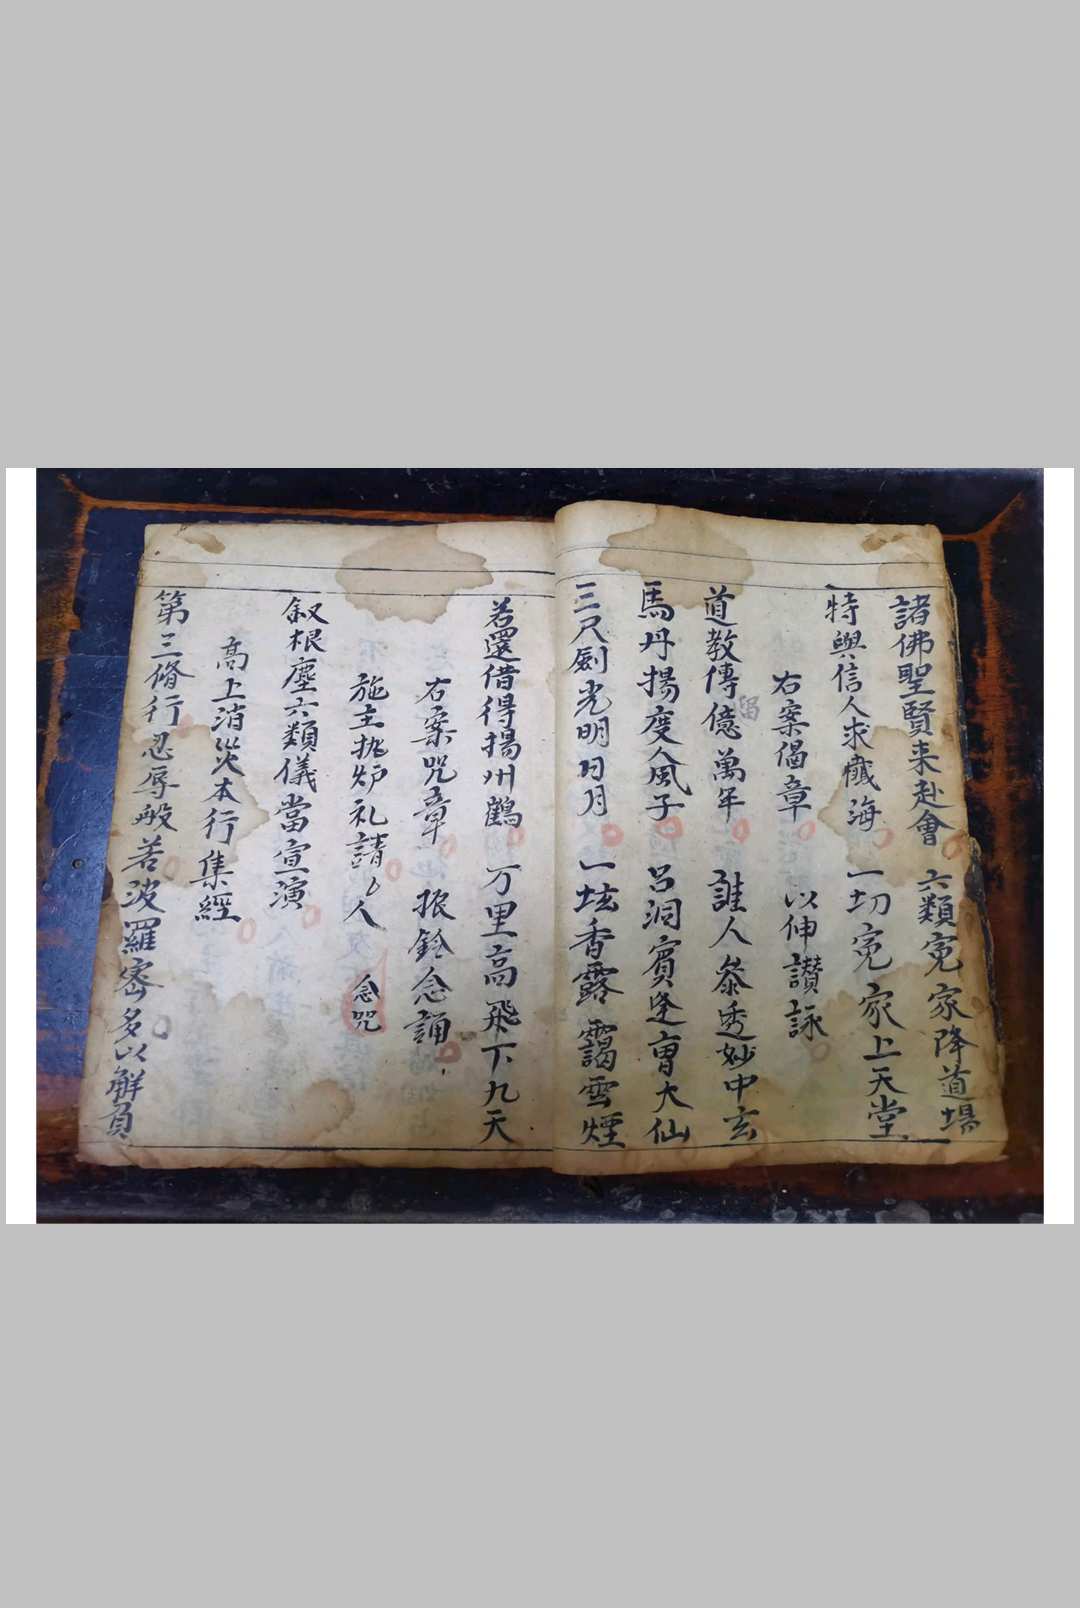 諸佛聖賢来赴會 六類寃家降道場
特與信人求懺海 一切寃家上天堂
右案偈章 以伸讃詠
道教傳億萬年 誰人叅透妙中玄
馬丹揚度人風子 吕洞賓逢曹大仙
三尺劍光明日月 一坛香露靄雲煙
若還借得揚州鶴 万里高飛下九天
右案咒章 振鈴念誦
施主执炉礼請〻人 念咒
叙根塵六類儀當宣演
高上消灾本行集經
第三脩行忍辱般若波羅宻多以解負